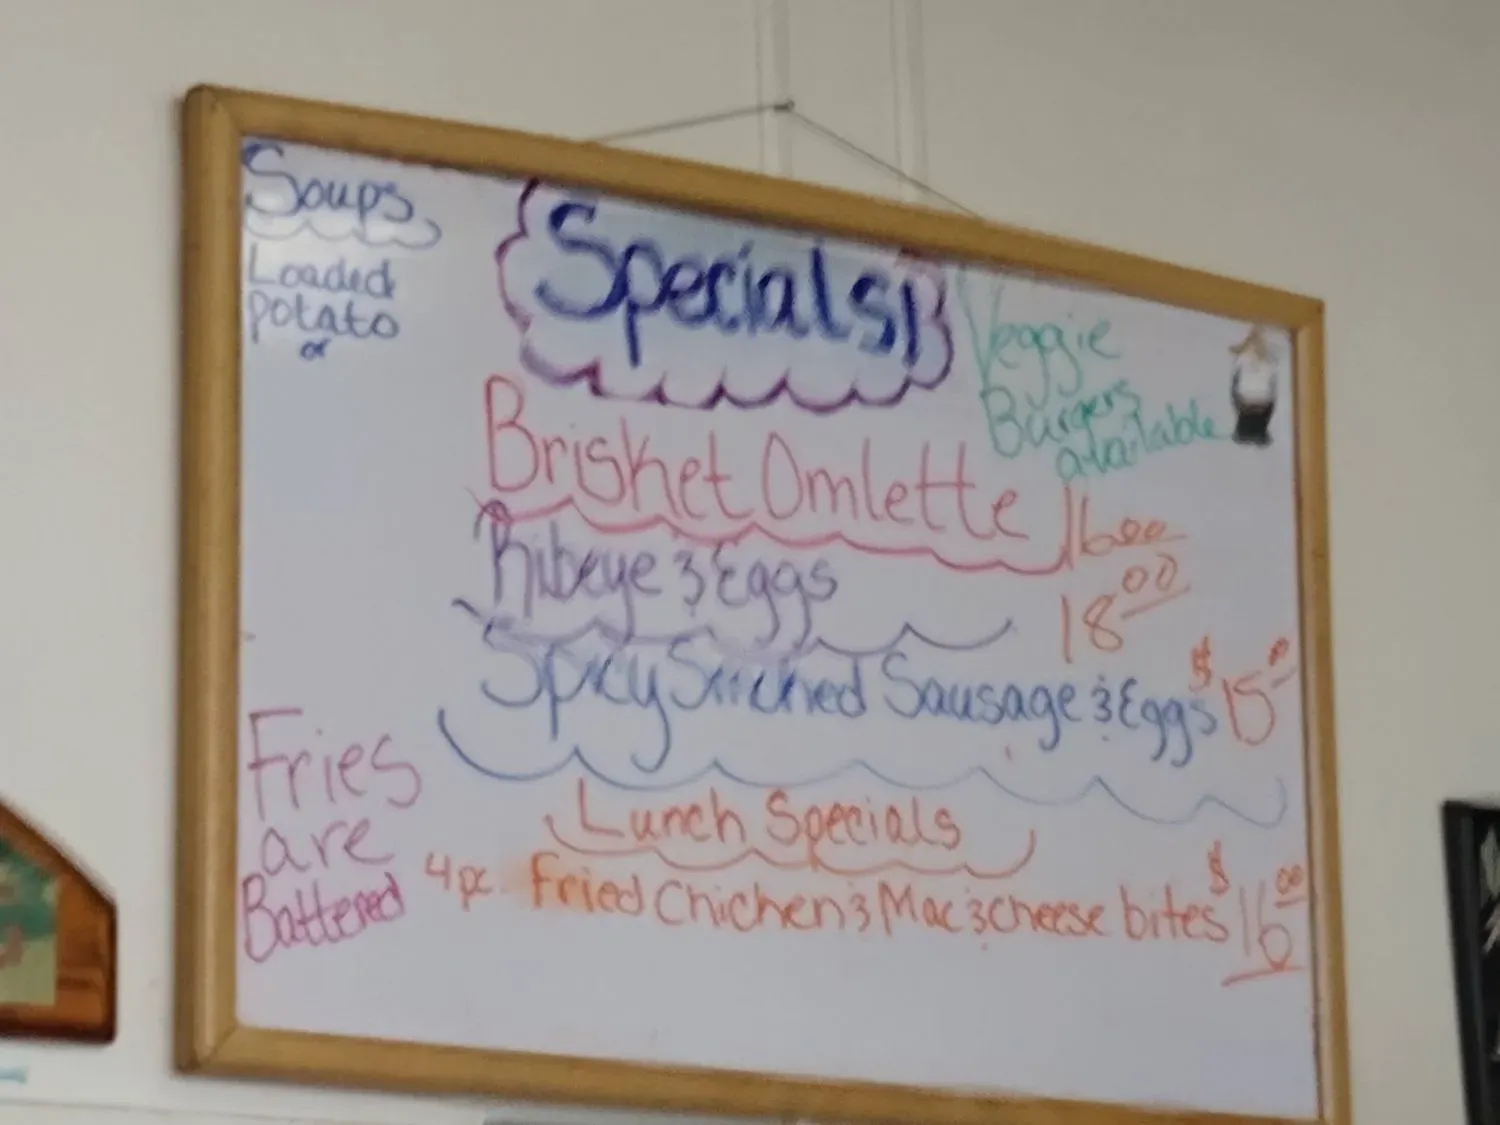 Soups
Loaded
potato
or
Specials!
Veggie
Burgers
available
Brisket Omlette 16 00
Ribeye & Eggs 18 00
Spicy Smoked Sausage & Eggs $15 00
Lunch Specials
4 pc. Fried Chicken & Mac & cheese bites $16 00
Fries
are
Battered